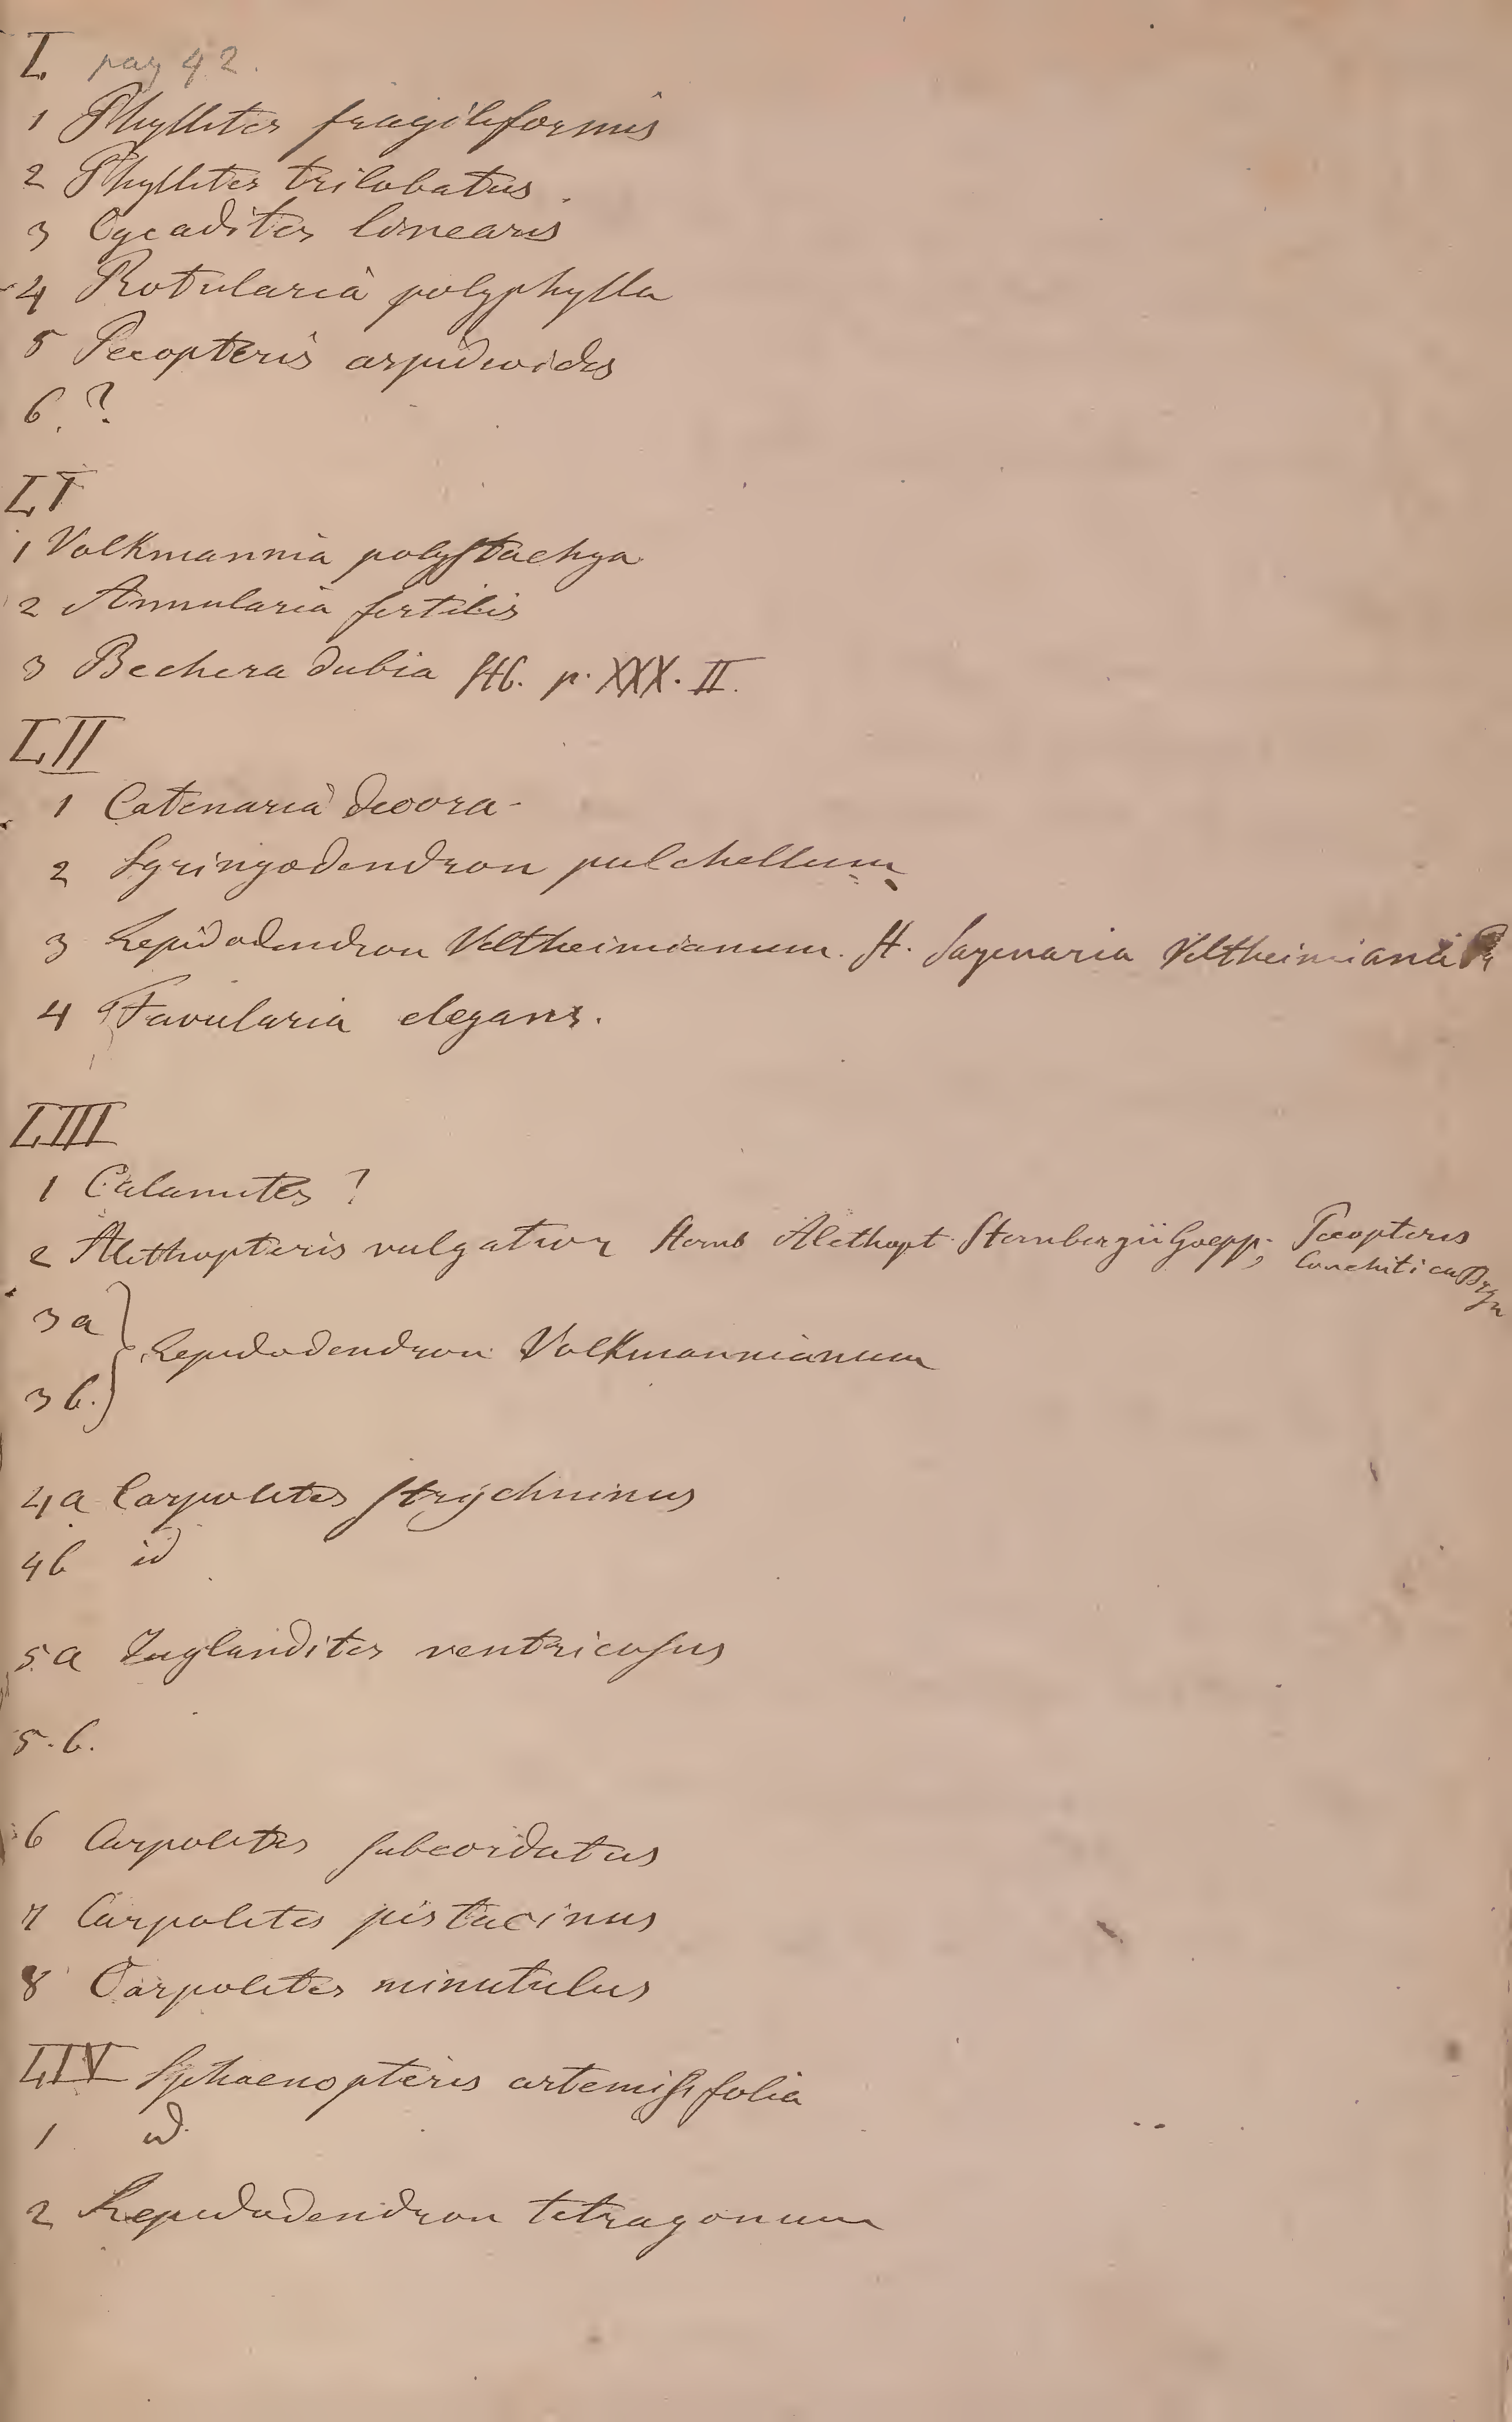 L pag 42.
1 Phyllites fragiliformis
2 Phyllites trilobatus.
3 Cycadites linearis
4 Rotularia polyphylla
5 Pecopteris aspidioides
6. ?
LI
1 Volkmannia polystachya
2 Annularia fertilis
3 Bechera dubia Stb. p. XXX. II.
LII
1 Catenaria decora-
2 Syringodendron pulchellum
3 Lepidodendron Veltheimianum. St. Sagenaria Veltheimiana Pr
4 Favularia elegans.
LIII
1 Calamites ?
2 Alethopteris vulgatior Sternb Alethopt Sternbergii Goepp; Pecopteris
lonchitica Brgn
3 a
Lepidodendron Volkmannianum
3 b.
4 a Carpolites strychninus
4 b id
5. a Juglandites ventricosus
5. b.
6 Carpolites subcordatus
7 Carpolites pistacinus
8 Carpolites minutulus
LIV Sphaenopteris artemisifolia
1 id.
2 Lepidodendron tetragonum